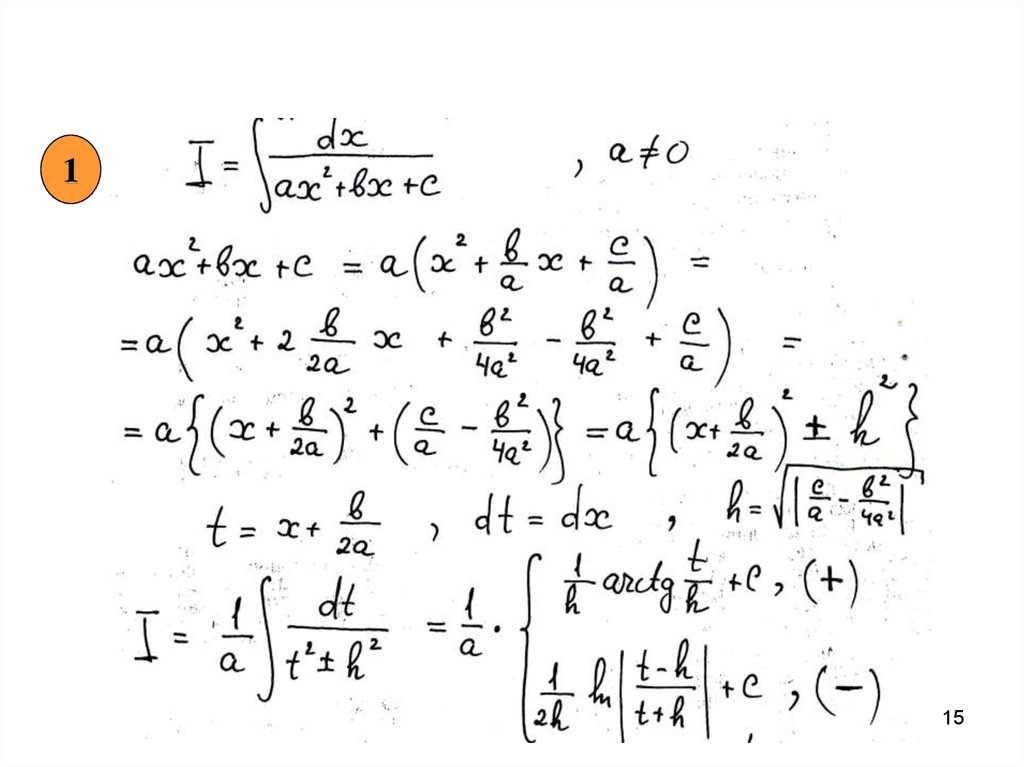 1
I = ∫ dx/(ax²+bx+c) , a≠0
ax²+bx+c = a(x² + b/a x + c/a) =
= a(x² + 2 b/2a x + b²/4a² - b²/4a² + c/a) =
= a{(x + b/2a)² + (c/a - b²/4a²)} = a{(x + b/2a)² ± h²}
t = x + b/2a , dt = dx , h = √|c/a - b²/4a²|
I = 1/a ∫ dt/(t² ± h²) = 1/a · { 1/h arctg t/h + C, (+)
1/2h ln |(t-h)/(t+h)| + C , (-)
15